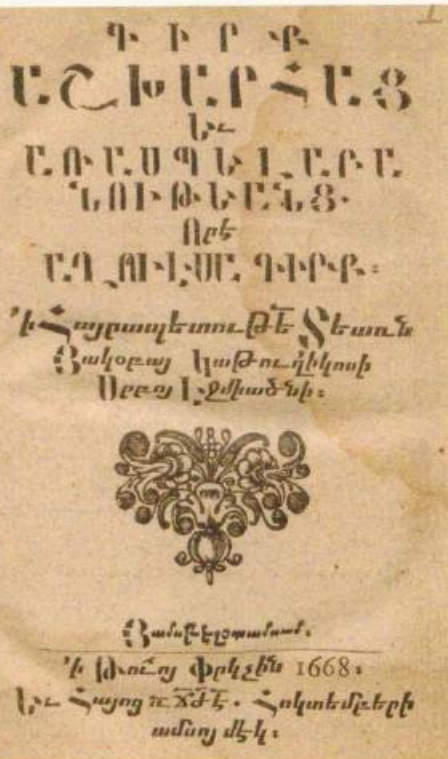 ԳԻՐՔ
ԱՇԽԱՐՀԱՑ
Եւ
ԱՌԱՍՊԵԼԱԲԱ
ՆՈՒԹԵԱՆՑ.
Որէ
ԱՂՈՒԷՍԱԳԻՐՔ։
Ի Հայրապետութե Տեառն
Յակօբայ Կաթուղիկոսի
Սրբոյ Էջմիածնի։
Յամսթէլօտամում.
Ի Թուոյ Փրկչին 1668։
Եւ Հայոց ՌՃԺԷ. Հոկտեմբերի
ամսոյ մէկ։